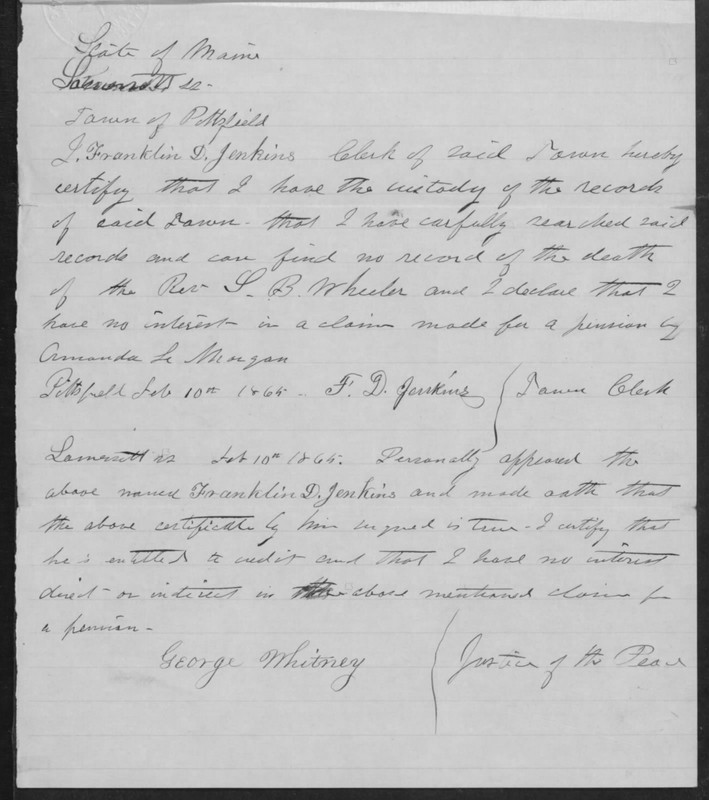 State of Maine
Somersett ss-
Town of Pittsfield
I. Franklin D. Jenkins Clerk of said Town hereby
certify that I have the custody of the records
of said Town - that I have carfully searched said
records and can find no record of the death
of the Rev. S. B. Wheeler and I declare that I
have no interest in a claim made for a pension by
Amanda Morgan
Pittsfield Feb 10th 1865 - F. D. Jenkins Town Clerk
Somersett ss Feb 10th 1865. Personally appeared the
above named Franklin D. Jenkins and made oath that
the above certificate by him signed is true - I certify that
he is entitled to credit and that I have no interest
direct or indirect in the above mentioned claim for
a pension -
George Whitney Justice of the Peace